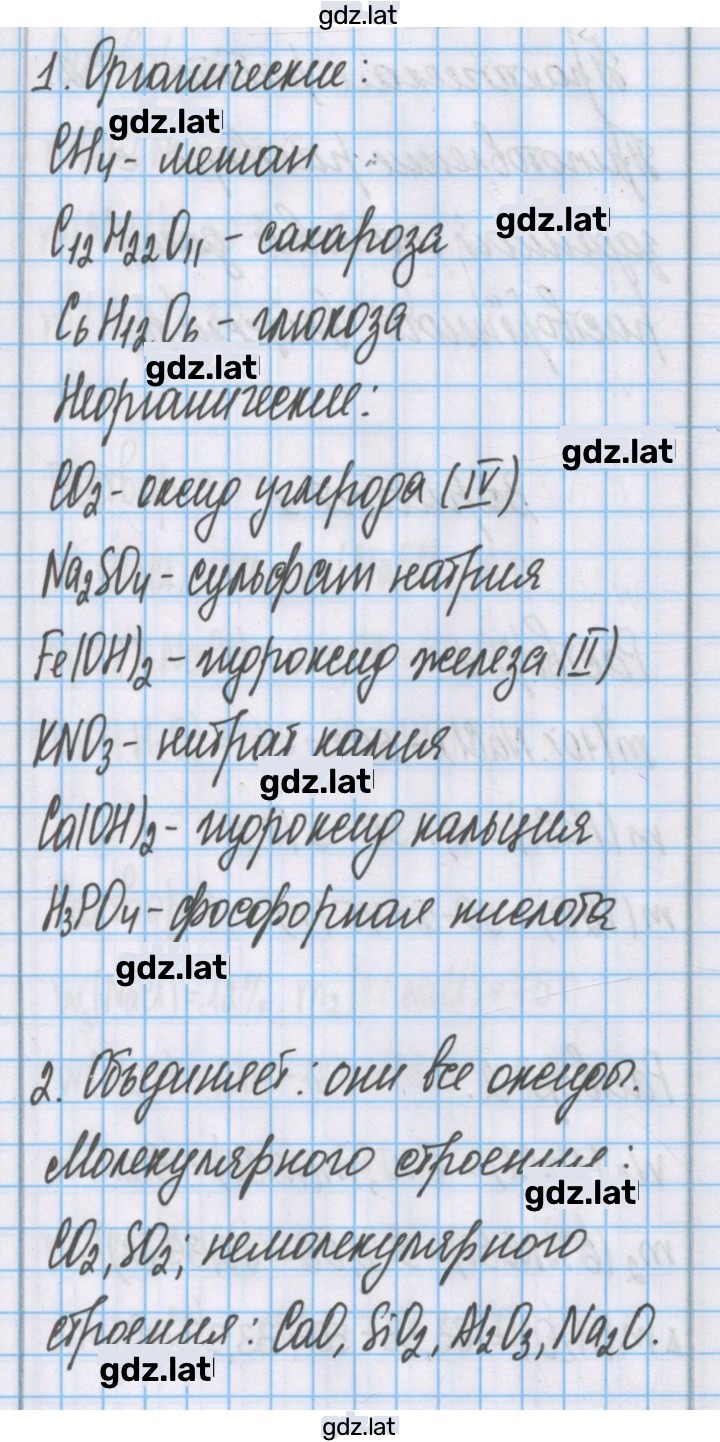 gdz.lat
1. Органические:
gdz.lat
CH4 - метан
gdz.lat
C12H22O11 - сахароза
C6H12O6 - глюкоза
gdz.lat
Неорганические:
gdz.lat
CO2 - оксид углерода (IV).
Na2SO4 - сульфат натрия
Fe(OH)2 - гидроксид железа (II)
KNO3 - нитрат калия
gdz.lat
Ca(OH)2 - гидроксид кальция
H3PO4 - фосфорная кислота
gdz.lat
2. Объединяет: они все оксиды.
Молекулярного строения:
gdz.lat
CO2, SO2; немолекулярного
строения: CaO, SiO2, Al2O3, Na2O.
gdz.lat
gdz.lat